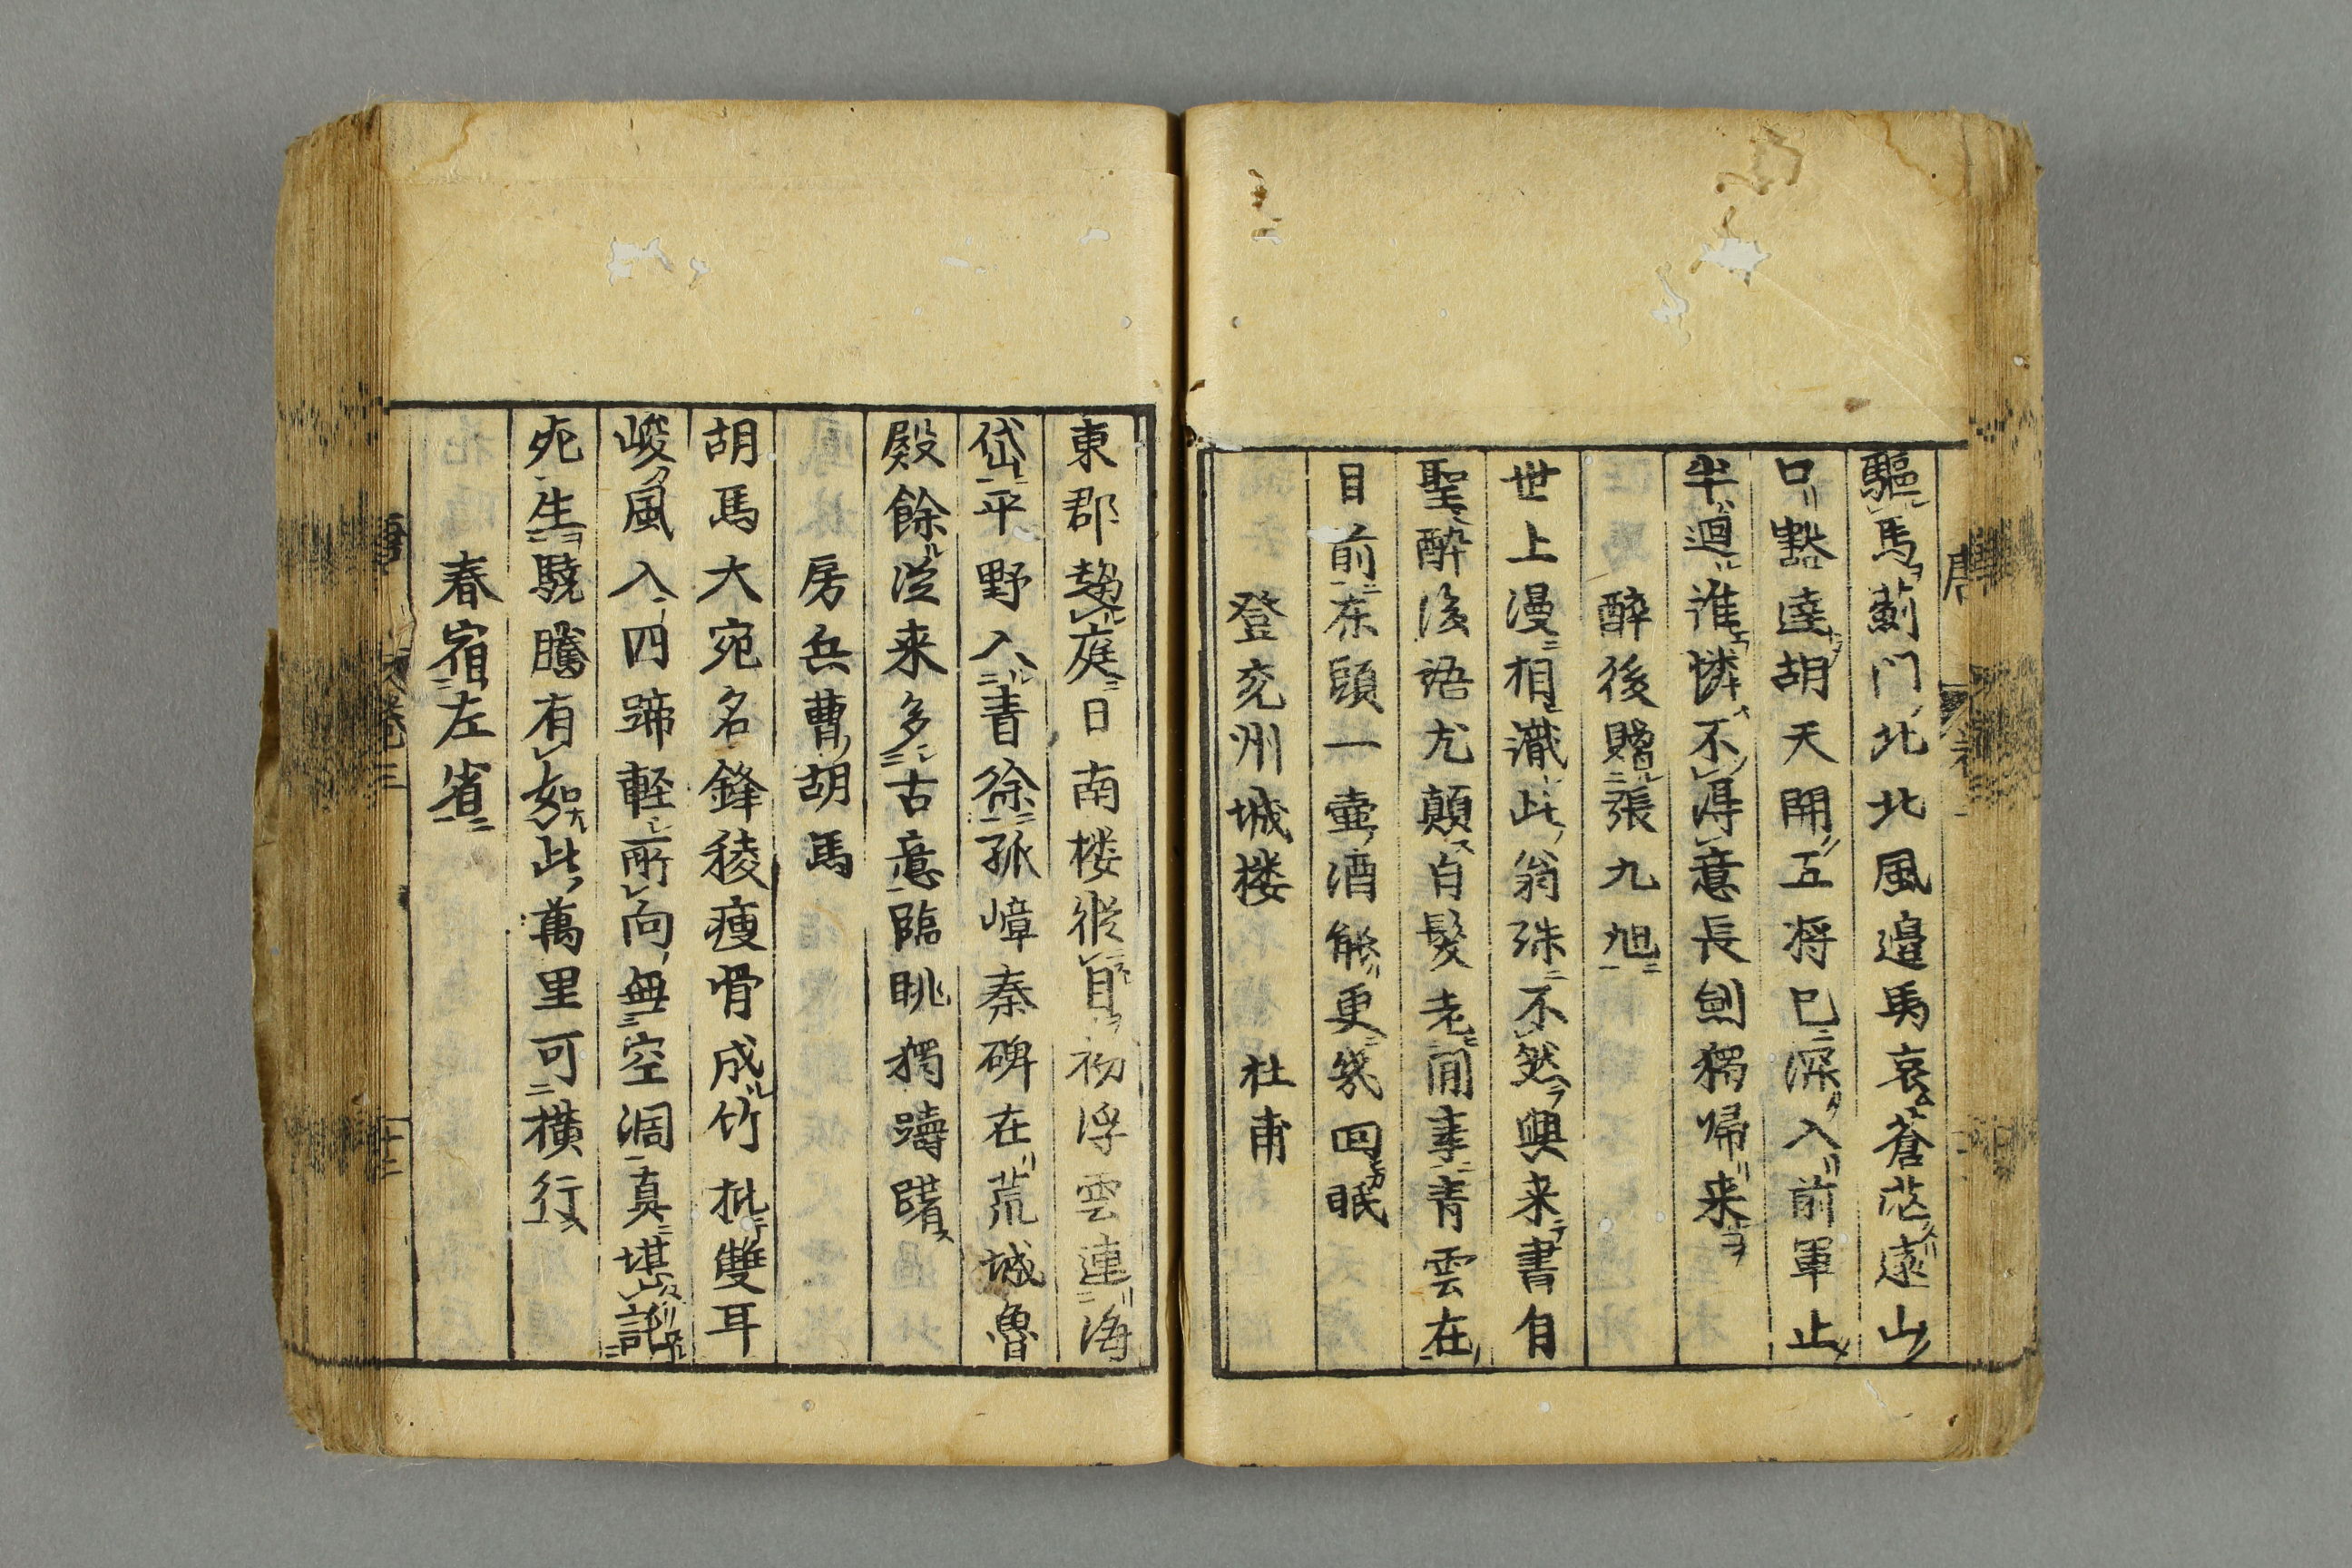 驅馬薊門北北風邉馬哀蒼茫遠山
口豁達胡天開五将已深入前軍止
半廻誰憐不得意長劍獨帰来
醉後贈張九旭
世上漫相識此翁殊不然興来書自
聖醉後語尤顛白髮老閒事青雲在
目前床頭一壷酒能更幾回眠
登兖州城楼 杜甫
東郡趨庭日南楼縱目初浮雲連海
岱平野入青徐孤嶂秦碑在荒城魯
殿餘從来多古意臨眺獨躊躇
房兵曹胡馬
胡馬大宛名鋒稜痩骨成竹批雙耳
峻風入四蹄軽所向無空濶真堪託
死生驍騰有如此萬里可横行
春宿左省